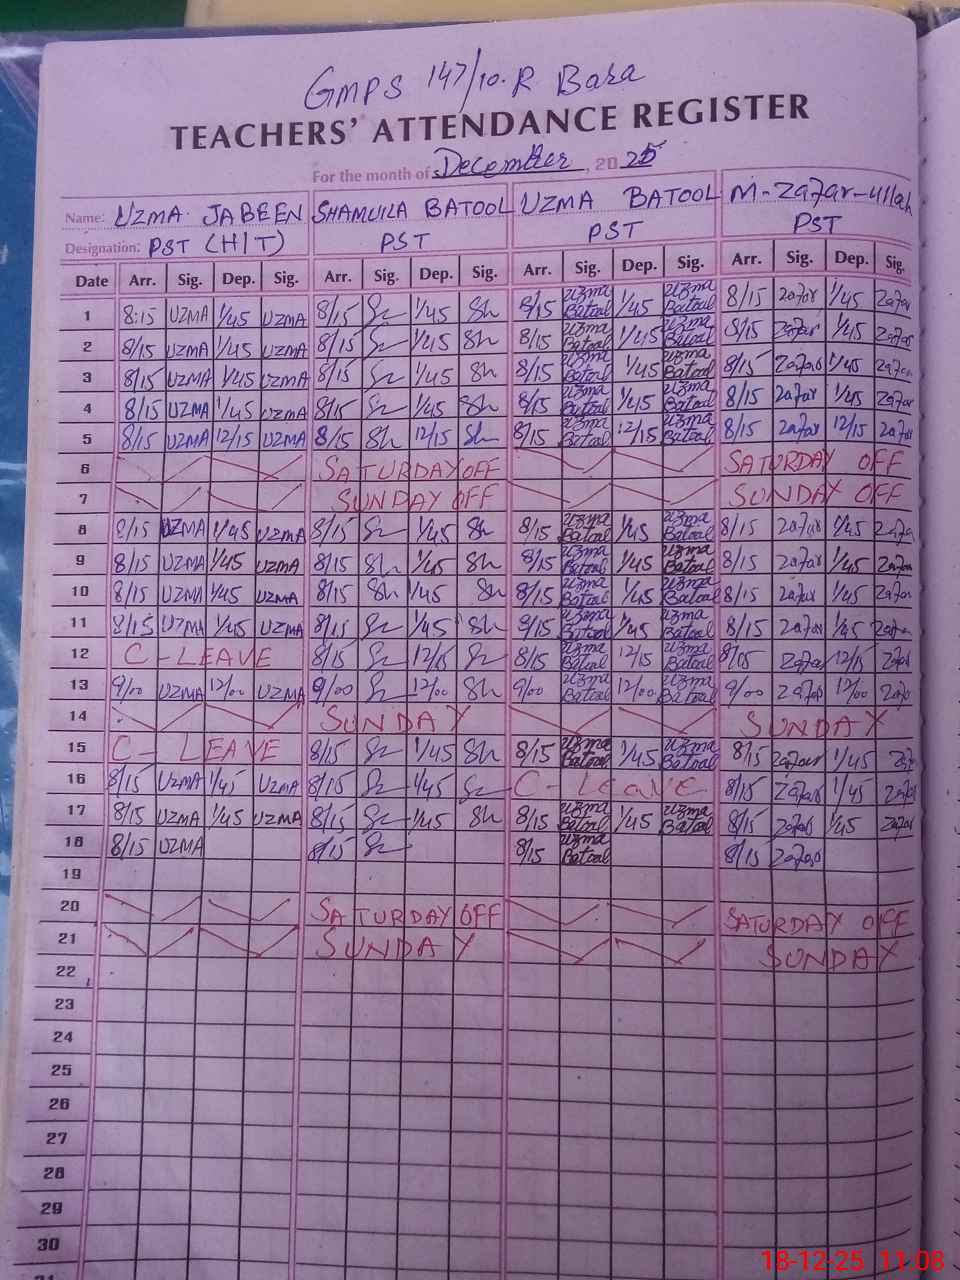 GMPS 147/10.R Bara
TEACHERS' ATTENDANCE REGISTER
For the month of December, 2025
Name: UZMA JABEEN SHAMUILA BATOOL UZMA BATOOL M-Zafar-ullah
Designation: PST (HIT) PST PST PST
Date Arr. Sig. Dep. Sig. Arr. Sig. Dep. Sig. Arr. Sig. Dep. Sig. Arr. Sig. Dep. Sig.
1 8:15 UZMA 1/45 UZMA 8/15 1/45 Sh 8/15 uzma Batool 1/45 uzma Batool 8/15 zafar 1/45 zafar
2 8/15 UZMA 1/45 UZMA 8/15 1/45 Sh 8/15 uzma Batool 1/45 uzma Batool 8/15 zafar 1/45 zafar
3 8/15 UZMA 1/45 UZMA 8/15 1/45 Sh 8/15 uzma Batool 1/45 uzma Batool 8/15 zafar 1/45 zafar
4 8/15 UZMA 1/45 UZMA 8/15 1/45 Sh 8/15 uzma Batool 1/45 uzma Batool 8/15 zafar 1/45 zafar
5 8/15 UZMA 12/15 UZMA 8/15 Sh 12/15 Sh 8/15 uzma Batool 12/15 uzma Batool 8/15 zafar 12/15 zafar
6 SATURDAY OFF SATURDAY OFF
7 SUNDAY OFF SUNDAY OFF
8 8/15 UZMA 1/45 UZMA 8/15 1/45 Sh 8/15 uzma Batool 1/45 uzma Batool 8/15 zafar 1/45 zafar
9 8/15 UZMA 1/45 UZMA 8/15 Sh 1/45 Sh 8/15 uzma Batool 1/45 uzma Batool 8/15 zafar 1/45 zafar
10 8/15 UZMA 1/45 UZMA 8/15 Sh 1/45 Sh 8/15 uzma Batool 1/45 uzma Batool 8/15 zafar 1/45 zafar
11 8/15 UZMA 1/45 UZMA 8/15 1/45 Sh 8/15 uzma Batool 1/45 uzma Batool 8/15 zafar 1/45 zafar
12 C-LEAVE 8/15 12/15 8/15 uzma Batool 12/15 uzma Batool 8/05 zafar 12/15 zafar
13 9/00 UZMA 12/00 UZMA 9/00 12/00 Sh 9/00 uzma Batool 12/00 uzma Batool 9/00 zafar 12/00 zafar
14 SUNDAY SUNDAY
15 C-LEAVE 8/15 1/45 Sh 8/15 uzma Batool 1/45 uzma Batool 8/15 zafar 1/45 zafar
16 8/15 UZMA 1/45 UZMA 8/15 1/45 C-Leave 8/15 zafar 1/45 zafar
17 8/15 UZMA 1/45 UZMA 8/15 1/45 Sh 8/15 uzma Batool 1/45 uzma Batool 8/15 zafar 1/45 zafar
18 8/15 UZMA 8/15 8/15 uzma Batool 8/15 zafar
19
20 SATURDAY OFF SATURDAY OFF
21 SUNDAY SUNDAY
22
23
24
25
26
27
28
29
30
31
18-12-25 11:08